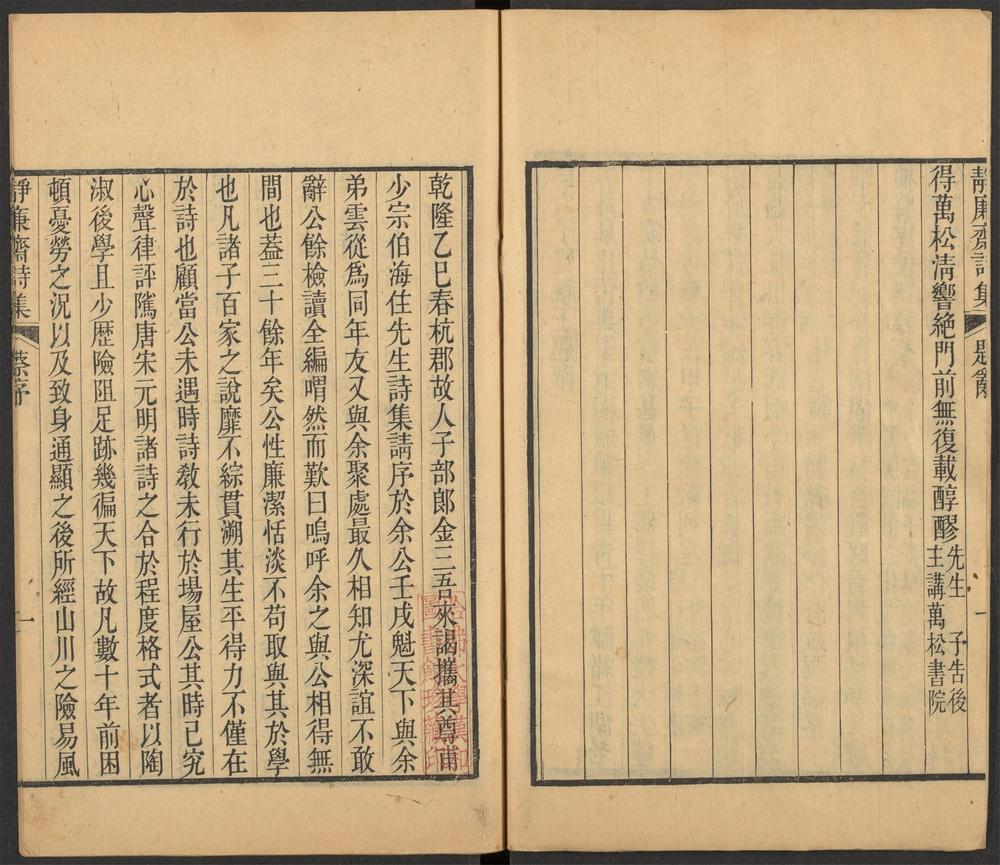 靜廉齋詩集 題辭 一
得萬松淸響絶門前無復載醇醪先生予告後主講萬松書院
乾隆乙巳春杭郡故人子部郎金三吾來謁攜其尊甫
少宗伯海住先生詩集請序於余公壬戌魁天下與余
弟雲從爲同年友又與余聚處最久相知尤深誼不敢
辭公餘檢讀全編喟然而歎曰嗚呼余之與公相得無
間也葢三十餘年矣公性廉潔恬淡不苟取與其於學
也凡諸子百家之說靡不綜貫溯其生平得力不僅在
於詩也顧當公未遇時詩敎未行於場屋公其時已究
心聲律評隲唐宋元明諸詩之合於程度格式者以陶
淑後學且少歷險阻足跡幾徧天下故凡數十年前困
頓憂勞之況以及致身通顯之後所經山川之險易風
靜廉齋詩集 蔡序 一
哈佛大學漢和圖書館珍藏印